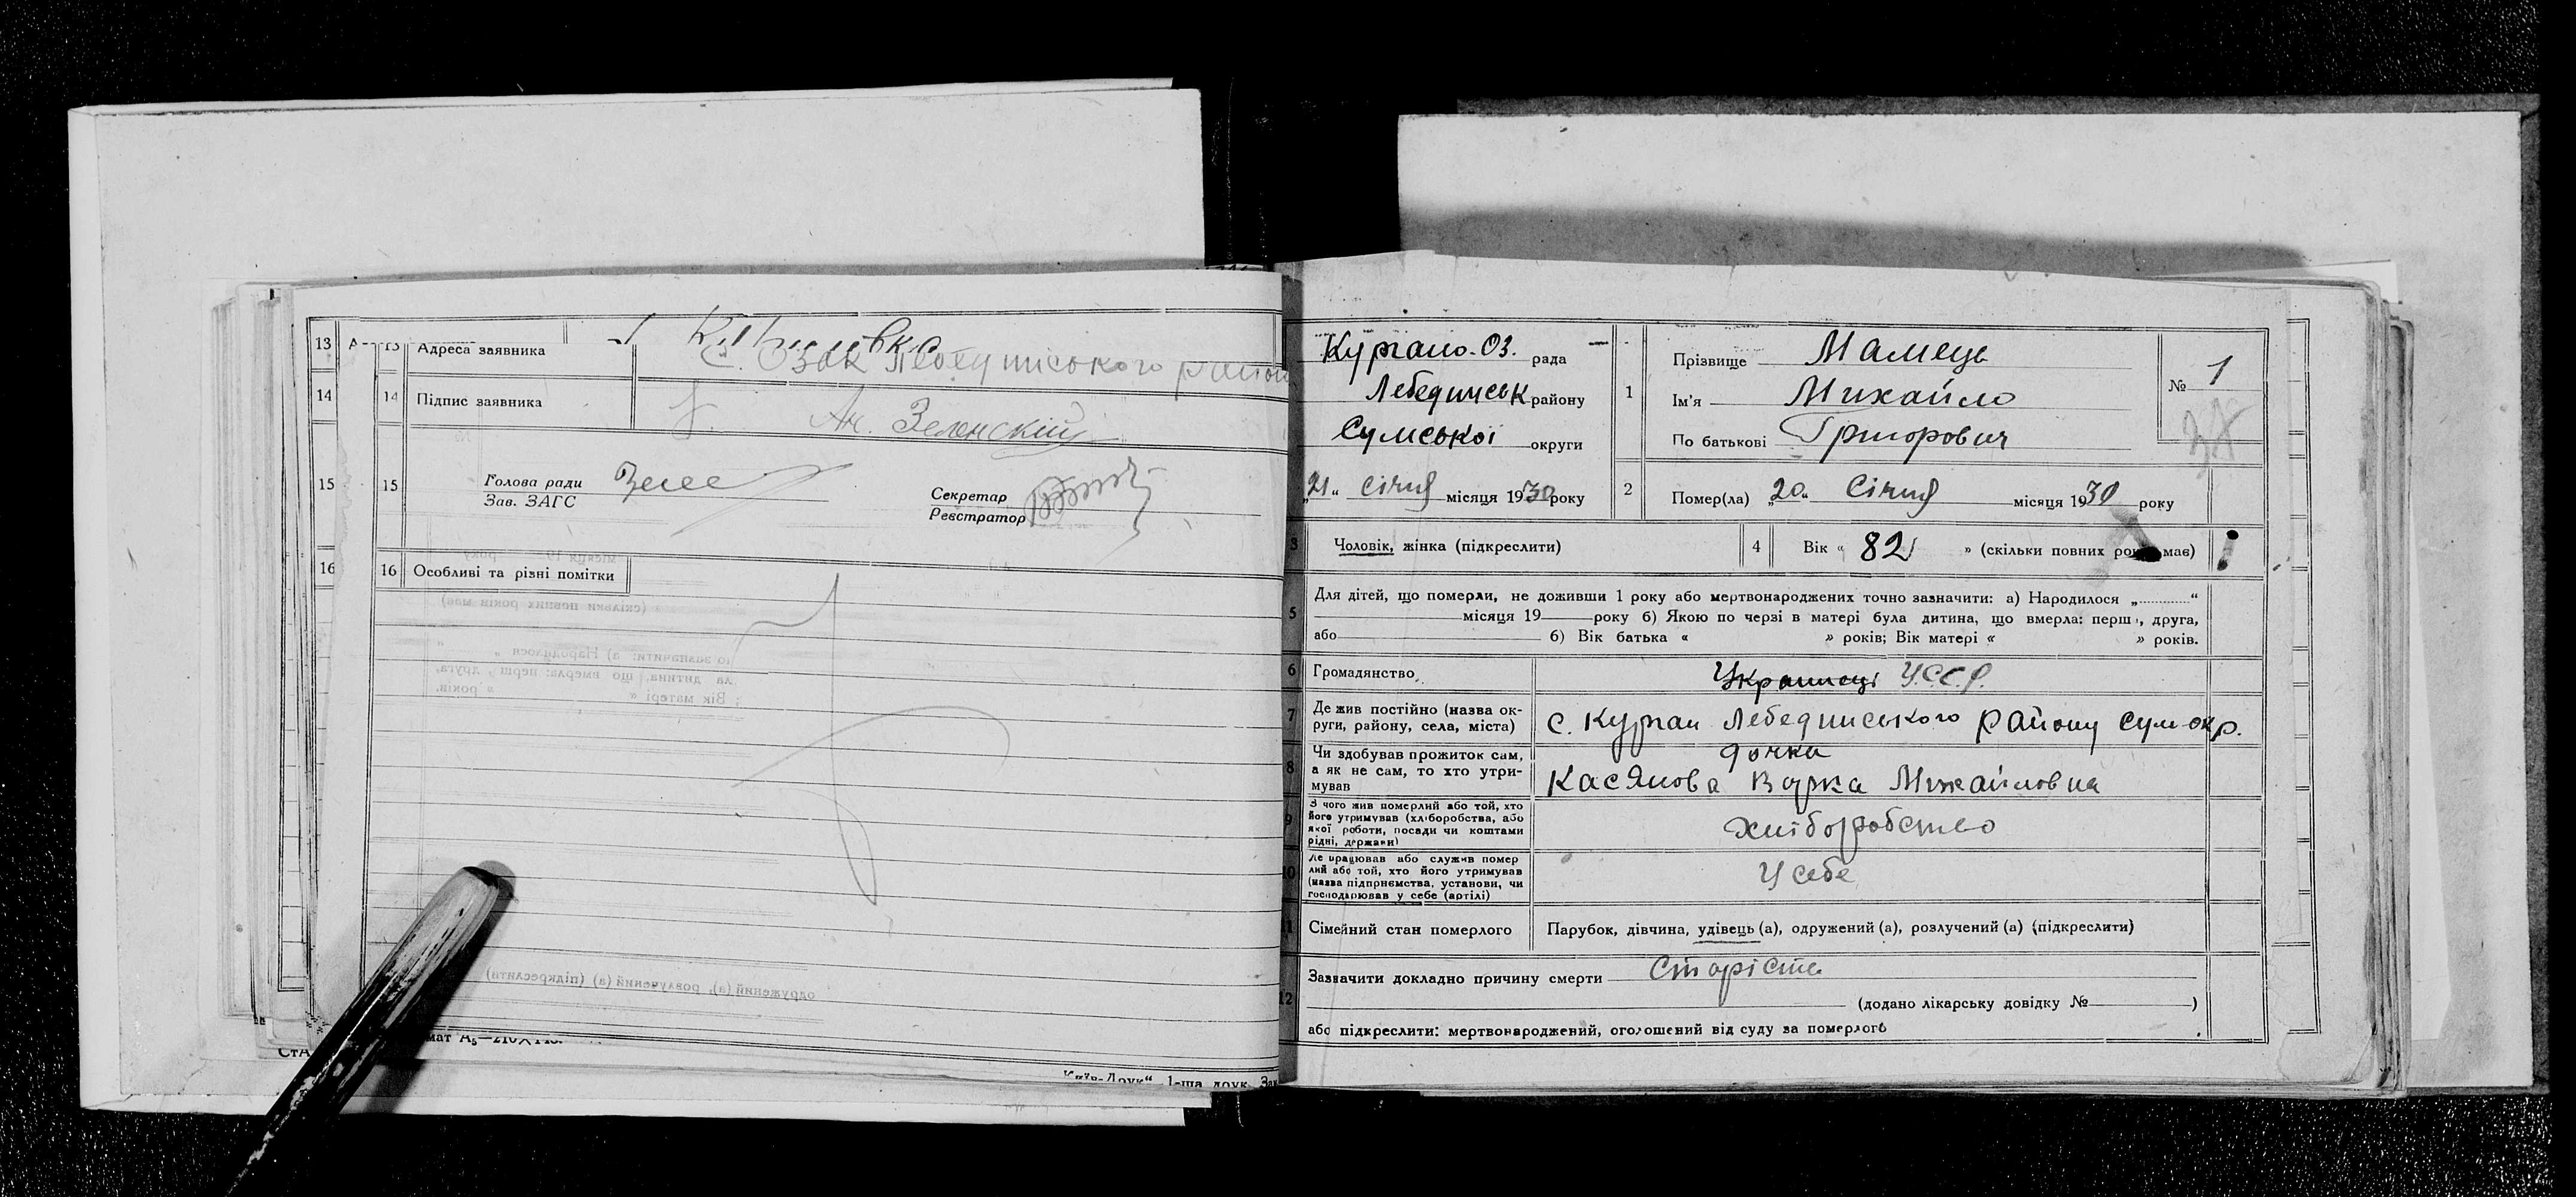 13
13 Адреса заявника с. Озак Лебединського район
14
14 Підпис заявника Ан. Зеленский
15
15 Голова ради
Зав. ЗАГС
Секретар
Реєстратор
16
16 Особливі та різні помітки
мат А5—210
Київ-Друк“ 1-ша друк. Зак
Кургано-Оз. рада
Лебединськ району
Сумської округи
„21“ Січня місяця 1930 року
1 Прізвище Мамець
Ім'я Михайло
По батькові Григорович
№ 1
37
2 Помер(ла) „20“ Січня місяця 1930 року
3 Чоловік, жінка (підкреслити)
4 Вік « 82 » (скільки повних років має)
5 Для дітей, що померли, не доживши 1 року або мертвонароджених точно зазначити: а) Народилося „............“
місяця 19 року б) Якою по черзі в матері була дитина, що вмерла: перша, друга,
або б) Вік батька « » років; Вік матері « » років.
6 Громадянство У.С.С.Р.
7 Де жив постійно (назва округи, району, села, міста) с. Курган Лебединського району Сум-окр.
8 Чи здобував прожиток сам, а як не сам, то хто утримував дочка
Касянова Варка Михайловна
9 З чого жив померлий або той, хто його утримував (хліборобства, або якої роботи, посади чи коштами рідні, держави) Хліборобство
10 Де працював або служив померлий або той, хто його утримував (назва підприємства, установи, чи господарював у себе (артілі) У себе
11 Сімейний стан померлого Парубок, дівчина, удівець (а), одружений (а), розлучений (а) (підкреслити)
12 Зазначити докладно причину смерти Старість
(додано лікарську довідку № )
або підкреслити: мертвонароджений, оголошений від суду за померлого